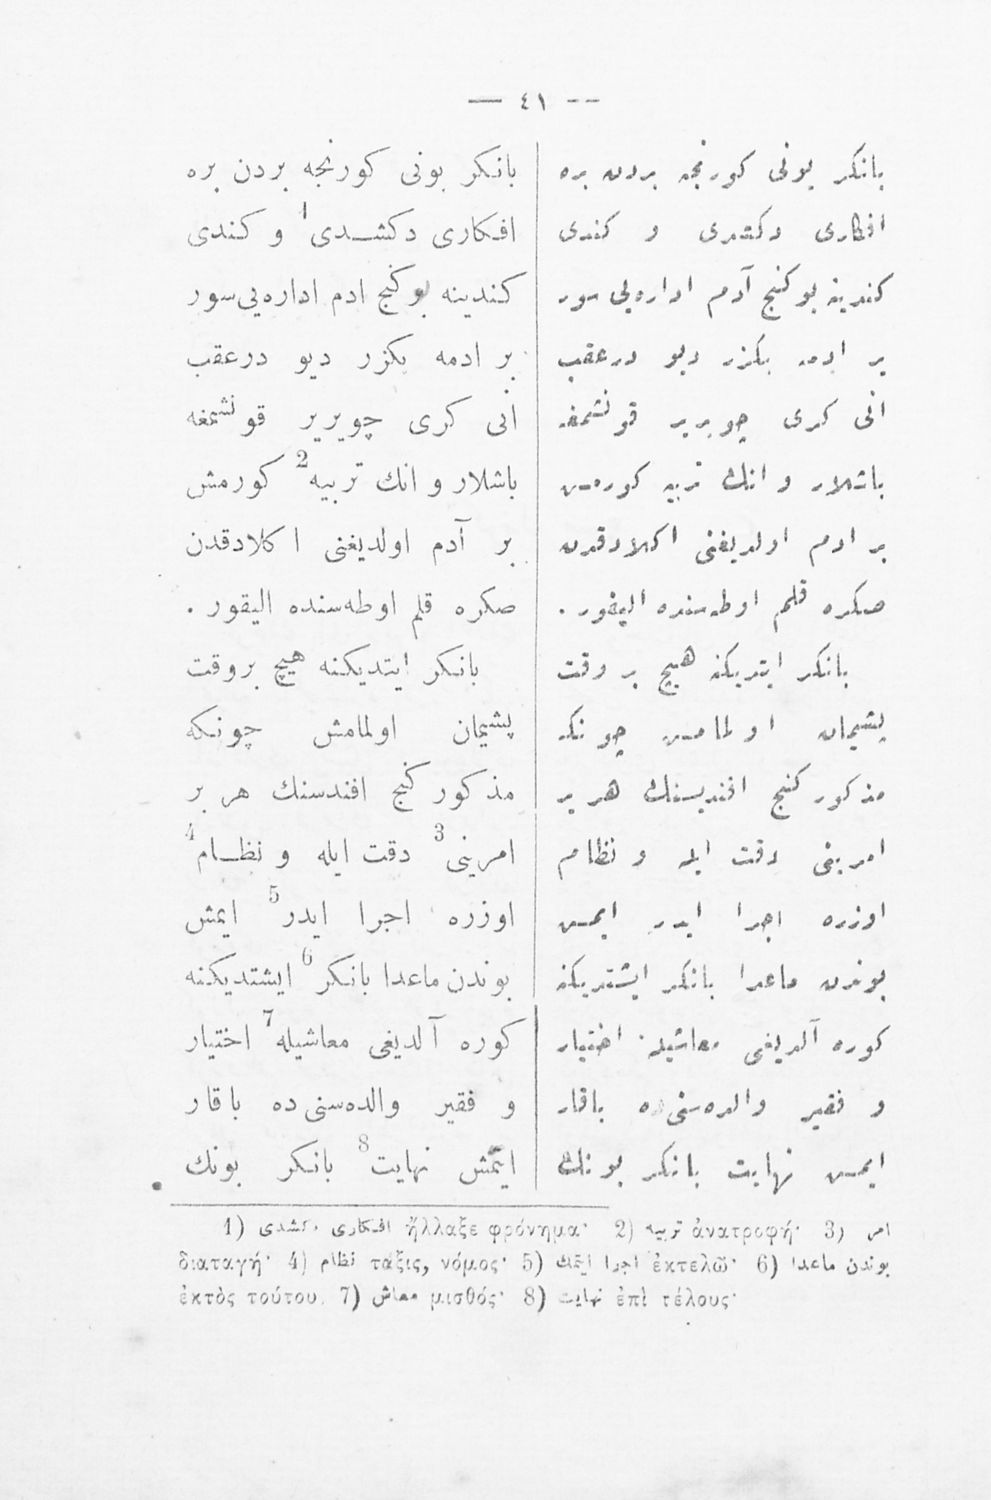 — ٤١ —
بانكر بونی كورنجه بردن بره
افكاری دكشدی و كندی
كندینه بو كنج آدم اداره‌یی سور
بر ادمه بكزر دیو درعقب
انی كری چویریر قونشمغه
باشلار و انك تربیه كورمش
بر ادم اولدیغنی اكلادقدن
صكره قلم اوطه‌سنده الیقور .
بانكر ایتدیكنه هیچ بر وقت
پشیمان اولمامش چونكه
مذكور كنج افندیسنك هر بر
امرینی دقت ایله و نظام
اوزره اجرا ایدر ایمش
بوندن ماعدا بانكر ایشتدیكنه
كوره آلدیغی معاشیله اختیار
و فقیر والده‌سنی ده باقار
ایمش نهایت بانكر بونك
بانكر بونی كورنجه بردن بره
افكاری دكشدی1 و كندی
كندینه بو كنج ادم اداره‌یی سور
بر ادمه بكزر دیو درعقب
انی كری چویریر قونشمغه
باشلار و انك تربیه2 كورمش
بر آدم اولدیغنی اكلادقدن
صكره قلم اوطه‌سنده الیقور .
بانكر ایتدیكنه هیچ بروقت
پشیمان اولمامش چونكه
مذكور كنج افندسنك هر بر
امرینی3 دقت ایله و نظام4
اوزره اجرا ایدر5 ایمش
بوندن ماعدا بانكر6 ایشتدیكنه
كوره آلدیغی معاشیله7 اختیار
و فقیر والده‌سنی ده باقار
ایتمش نهایت8 بانكر بونك
1) افكاری دكشدی ἤλλαξε φρόνημα· 2) تربیه ἀνατροφή· 3) امر
διαταγή· 4) نظام τάξις, νόμος· 5) اجرا ایتمك ἐκτελῶ· 6) بوندن ماعدا
ἐκτὸς τούτου. 7) معاش μισθός· 8) نهایت ἐπὶ τέλους·